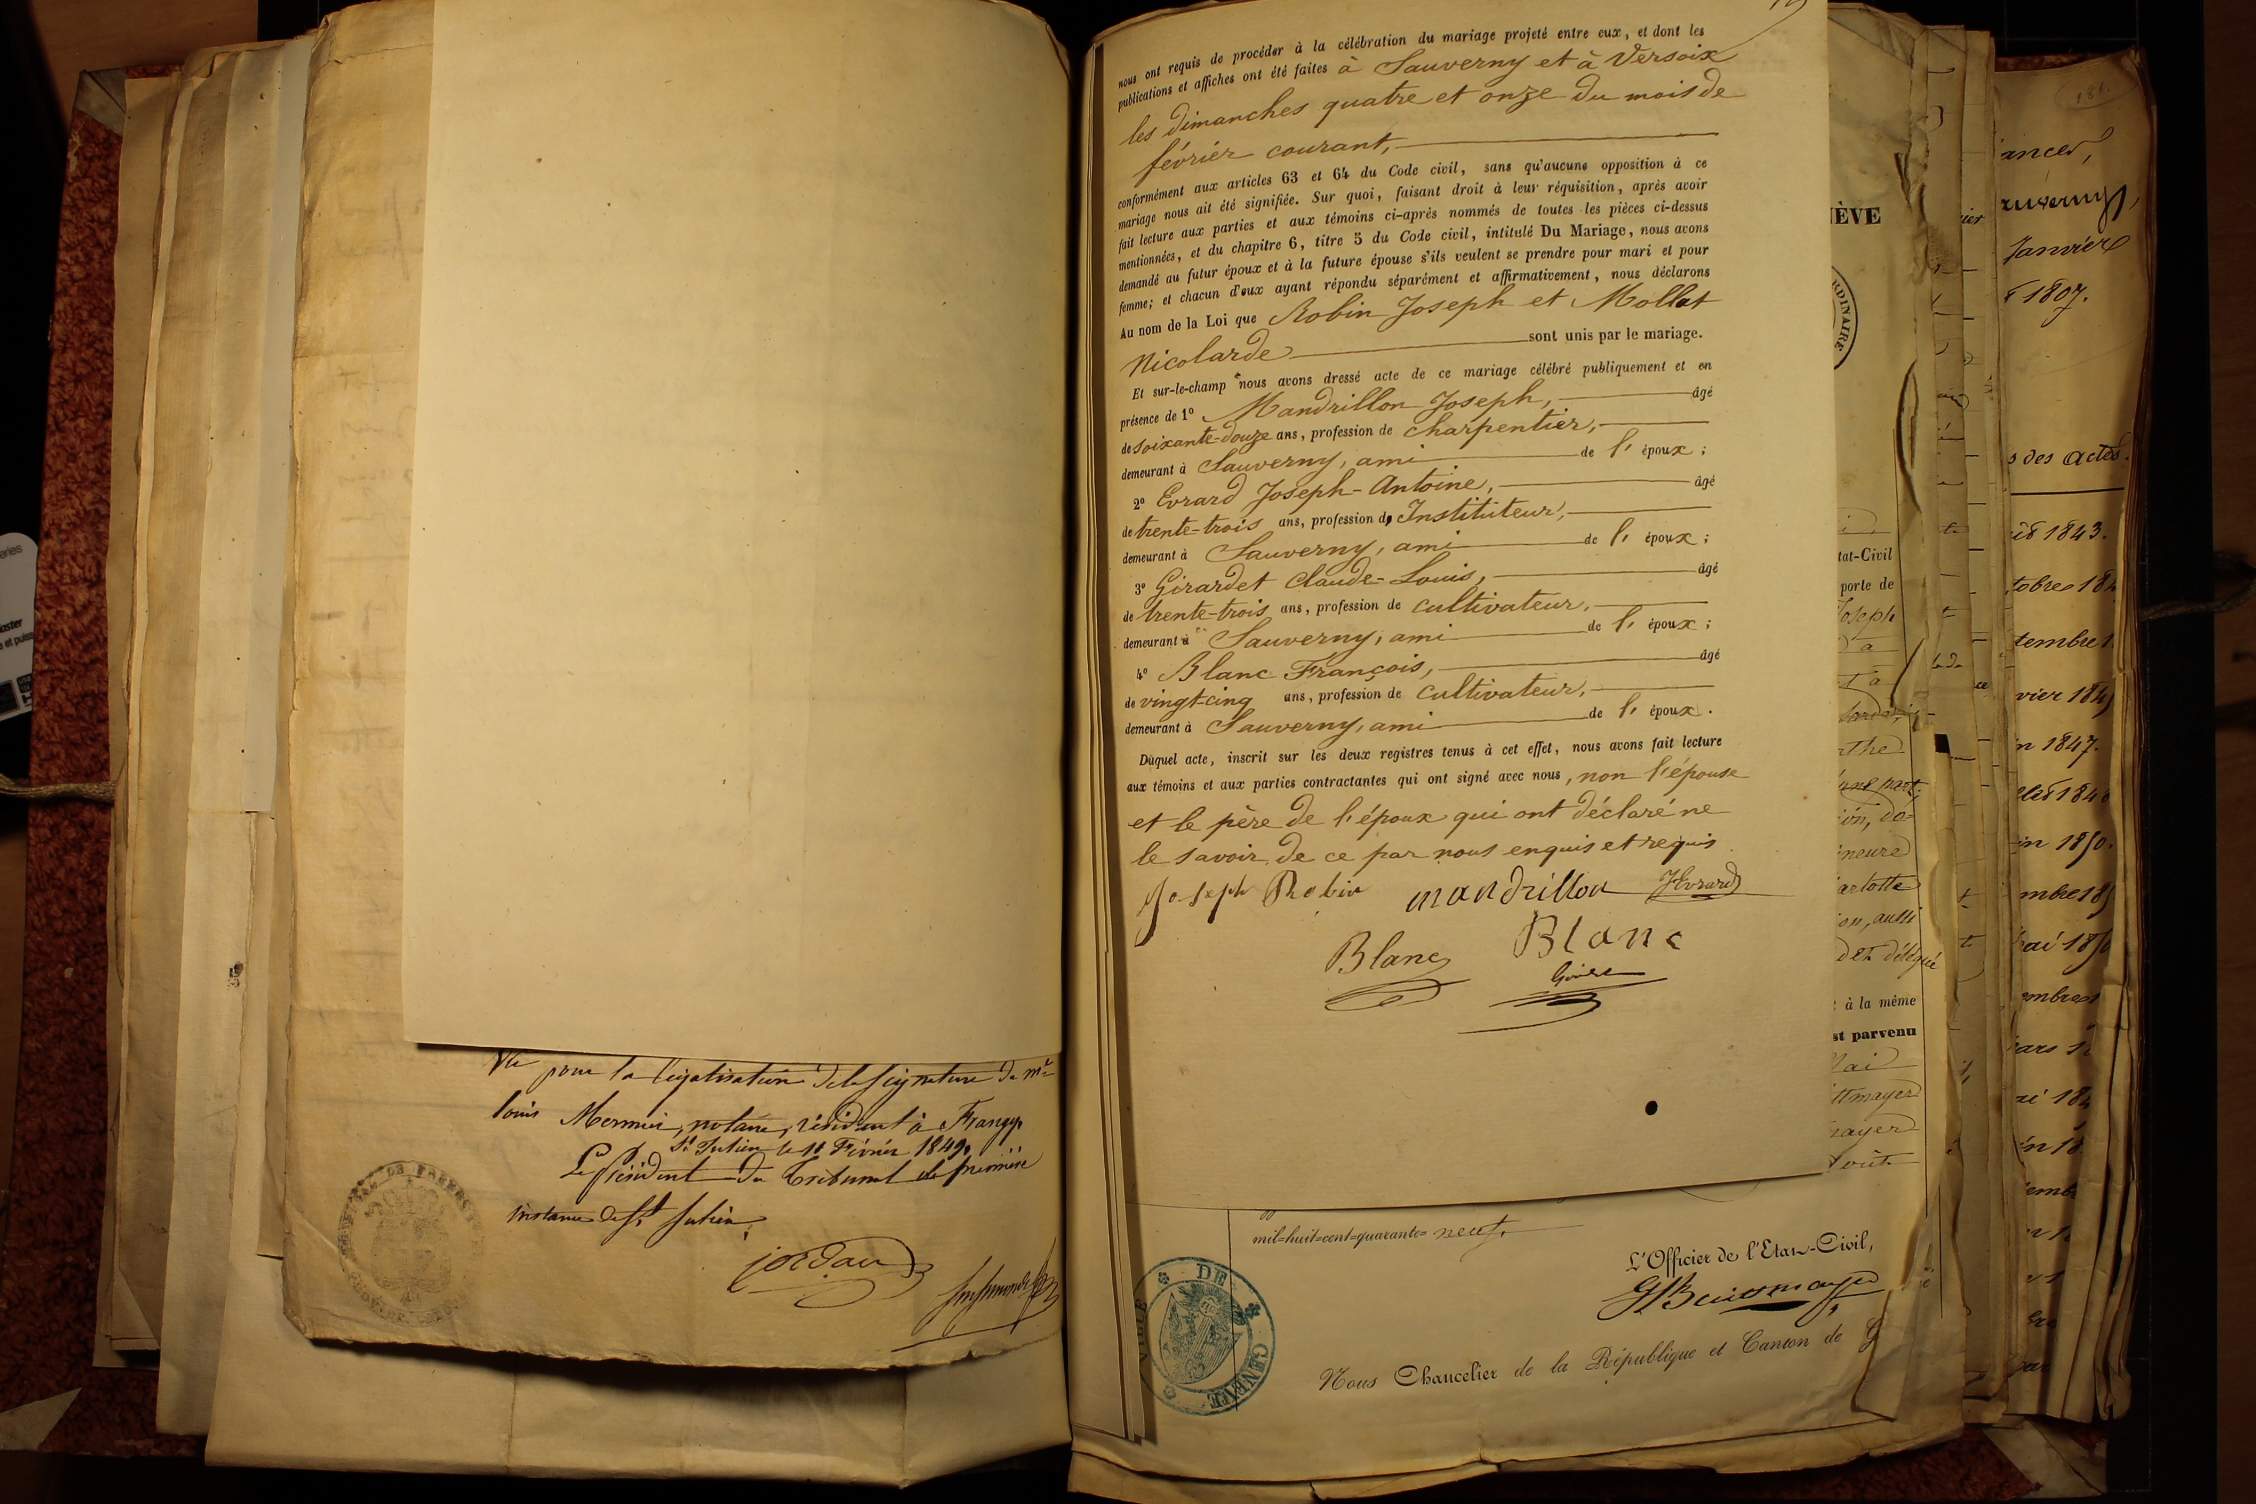 Vu pour la légalisation de la signature de Mr
louis Mermier, notaire, résidant à Frangy
St Julien le 18 Février 1849.
Le Président du Tribunal de première
instance de St Julien
Jordan
nous ont requis de procéder à la célébration du mariage projeté entre eux, et dont les
publications et affiches ont été faites à Sauverny et à Versoix
les dimanches quatre et onze du mois de
février courant,
conformément aux articles 63 et 64 du Code civil, sans qu'aucune opposition à ce
mariage nous ait été signifiée. Sur quoi, faisant droit à leur réquisition, après avoir
fait lecture aux parties et aux témoins ci-après nommés de toutes les pièces ci-dessus
mentionnées, et du chapitre 6, titre 5 du Code civil, intitulé Du Mariage, nous avons
demandé au futur époux et à la future épouse s'ils veulent se prendre pour mari et pour
femme; et chacun d'eux ayant répondu séparément et affirmativement, nous déclarons
Au nom de la Loi que Robin Joseph et Mollat
Nicolarde sont unis par le mariage.
Et sur-le-champ nous avons dressé acte de ce mariage célébré publiquement et en
présence de 1° Mandrillon Joseph, âgé
de soixante-douze ans, profession de charpentier,
demeurant à Sauverny, ami de l' époux;
2° Evrard Joseph-Antoine, âgé
de trente-trois ans, profession d' Instituteur,
demeurant à Sauverny, ami de l' époux;
3° Girardet Claude-Louis, âgé
de trente-trois ans, profession de cultivateur,
demeurant à Sauverny, ami de l' époux;
4° Blanc François, âgé
de vingt-cinq ans, profession de cultivateur,
demeurant à Sauverny, ami de l' époux.
Duquel acte, inscrit sur les deux registres tenus à cet effet, nous avons fait lecture
aux témoins et aux parties contractantes qui ont signé avec nous, non l'épouse
et le père de l'époux qui ont déclaré ne
le savoir de ce par nous enquis et requis
Joseph Robin mandrillon JEvrard
Blanc Blanc
mil-huit-cent-quarante- neuf.
L'Officier de l'Etat-Civil,
Nous Chancelier de la République et Canton de G
DE GENEVE
NÈVE
RDINAIRE
tat-Civil
porte de
Joseph
rthe
neure
arlotte
on, aussi
det délégué
à la même
st parvenu
Mai
ttmayer
mayer
181.
ances,
auverny,
Janvier
1807.
s des actes.
1843.
tobre 184
tembre 1
vier 184
n 1847.
in 1850.
mbre 18